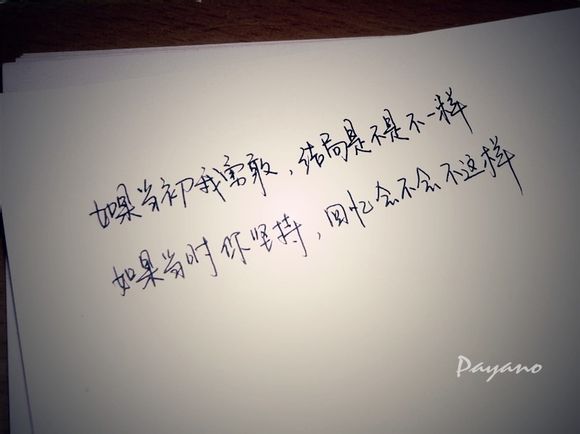 如果当初我勇敢，结局是不是不一样
如果当时你坚持，回忆会不会不这样
Payano